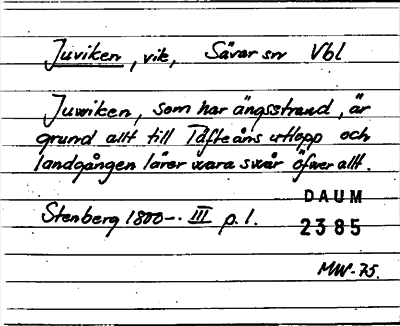 Juviken, vik, Sävar sn Vbl
Juwiken, som har ängsstrand, är
grund allt till Täfteåns utlopp och
landgången lärer wara swår öfwer allt.
DAUM
Stenberg 1800-. III p. 1.
2385
MW-75.